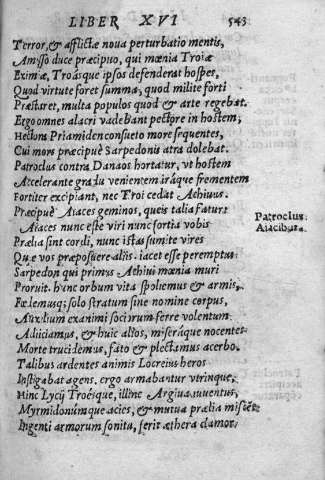 LIBER XVI 543
Terror, & afflictæ noua perturbatio mentis,
Amisso duce præcipuo, qui mœnia Troiæ
Eximiæ, Troásque ipsos defenderat hospes,
Quod virtute foret summa, quod milite forti
Præstaret, multa populos quod & arte regebat.
Ergo omnes alacri vadebant pectore in hostem,
Hectora Priamiden consueto more sequentes,
Cui mors præcipuè Sarpedonis atra dolebat.
Patroclus contra Danaos hortatur, vt hostem
Accelerante gradu venientem iráque frementem
Fortiter excipiant, nec Troi cedat Achiuus.
Præcipuè Aiaces geminos, queis talia fatur:
Aiaces nunc este viri nunc fortia vobis
Patroclus
Aiacibus.
Prælia sint cordi, nunc istas sumite vires
Quæ vos præposuere aliis. iacet esse peremptus
Sarpedon qui primus Achiui mœnia muri
Proruit. hunc orbum vita spoliemus & armis,
Fœdemusq; solo stratum sine nomine corpus,
Auxilium exanimi sociorum ferre volentum
Adiiciamus, & huic alios, miseráque nocentes
Morte trucidemus, fato & plectamus acerbo.
Talibus ardentes animis Locreius heros
Instigabat agens. ergo armabantur vtrinque,
Hinc Lycij Troésque, illinc Argiua iuuentus,
Myrmidonúmque acies, & mutua prælia miscēt
Ingenti armorum sonitu, ferit æthera clamor,